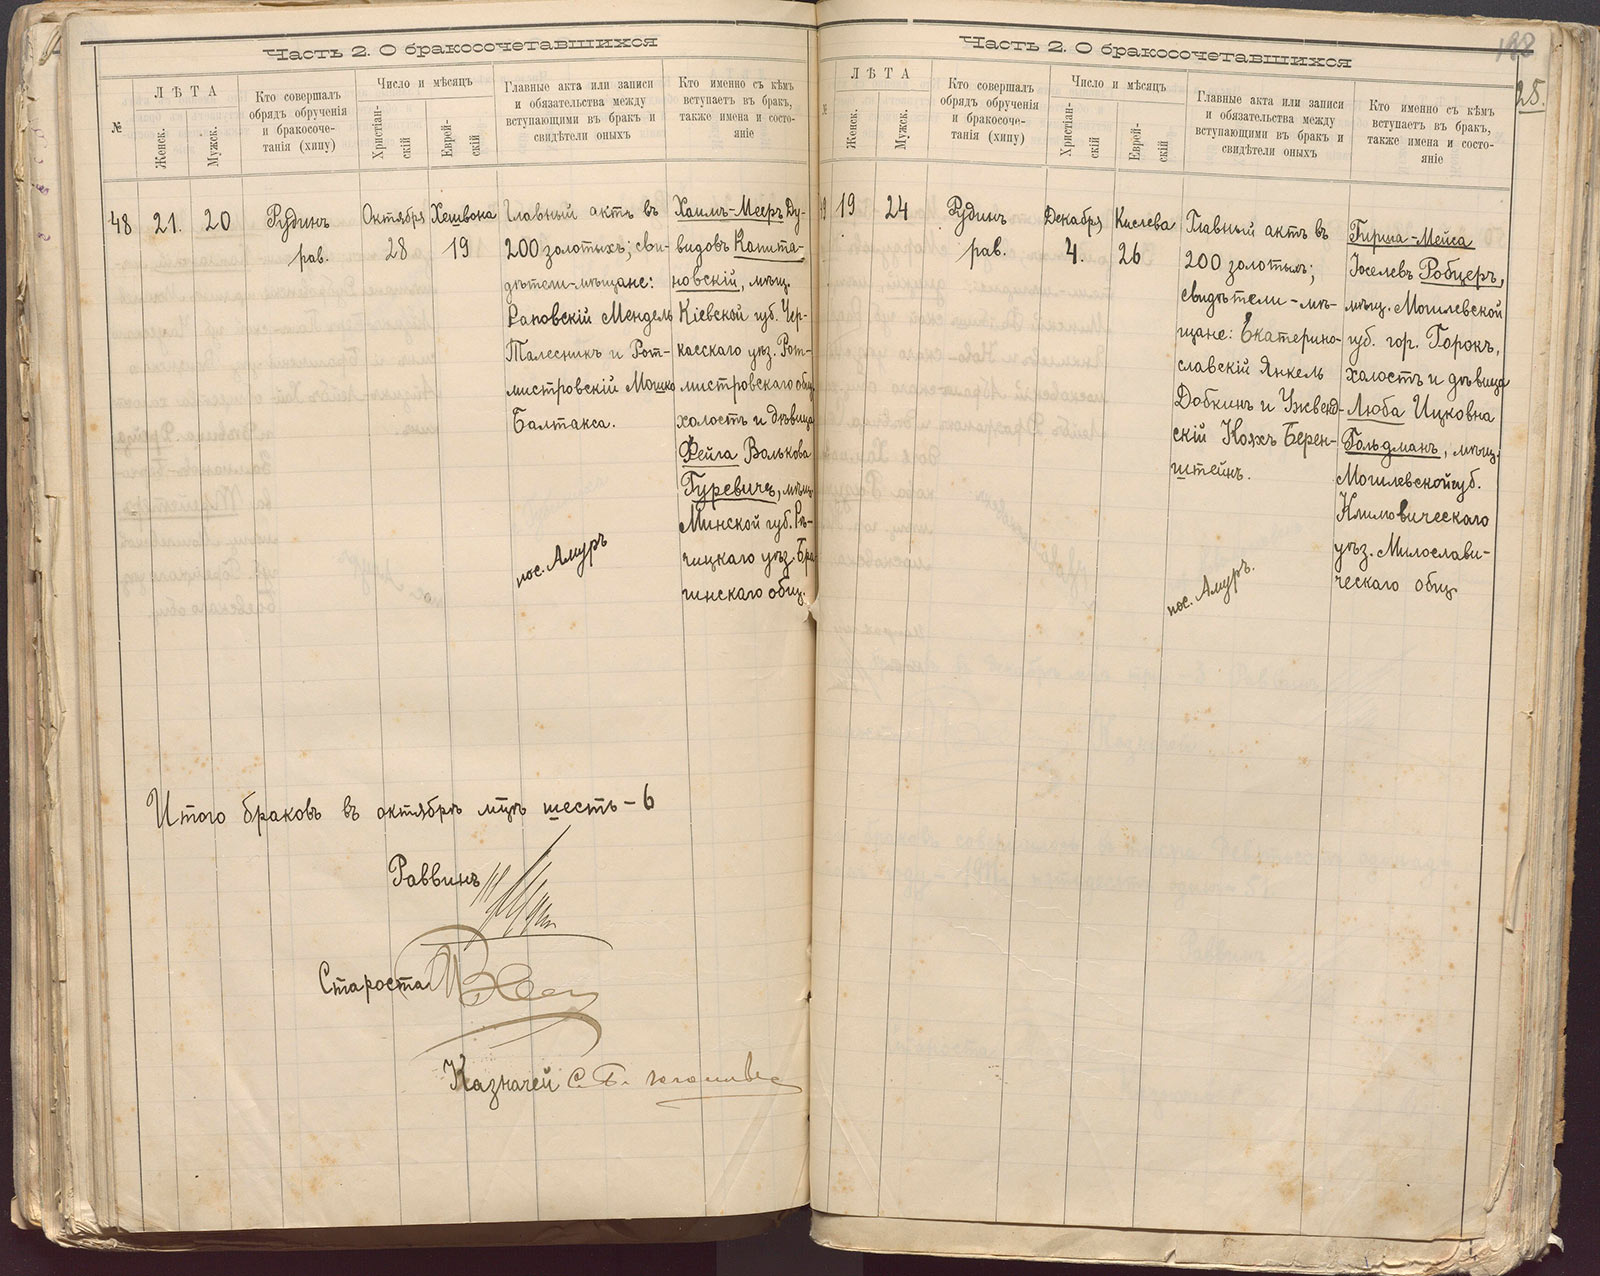 Часть 2. О бракосочетавшихся
№
ЛѢТА
Женск.
Мужск.
Кто совершалъ
обрядъ обрученія
и бракосоче-
танія (хипу)
Число и мѣсяцъ
Христіан-
скій
Еврей-
скій
Главные акта или записи
и обязательства между
вступающими въ бракъ и
свидѣтели оныхъ
Кто именно съ кѣмъ
вступаетъ въ бракъ,
также имена и состо-
яніе
48
21.
20
Рудинъ
рав.
Октября
28
Хешвона
19
Главный актъ въ
200 золотыхъ; сви-
дѣтели-мѣщане:
Раковскій Мендель
Талесникъ и Рот-
мистровскій Мошко
Балтакса.
пос. Амуръ
Хаимъ-Мееръ Ду-
видовъ Капита-
новскій, мѣщ.
Кіевской губ. Чер-
касскаго уѣз. Рот-
мистровскаго общ.
холостъ и дѣвица
Фейга Волькова
Гуревичъ, мѣщ.
Минской губ. Рѣ-
чицкаго уѣз. Бра-
гинскаго общ.
Итого браковъ въ октябрѣ мцѣ шесть - 6
Раввинъ
Староста
Казначей С. Б.
Часть 2. О бракосочетавшихся
25.
№
ЛѢТА
Женск.
Мужск.
Кто совершалъ
обрядъ обрученія
и бракосоче-
танія (хипу)
Число и мѣсяцъ
Христіан-
скій
Еврей-
скій
Главные акта или записи
и обязательства между
вступающими въ бракъ и
свидѣтели оныхъ
Кто именно съ кѣмъ
вступаетъ въ бракъ,
также имена и состо-
яніе
19
24
Рудинъ
рав.
Декабря
4.
Кислева
26
Главный актъ въ
200 золотыхъ;
свидѣтели-мѣ-
щане: Екатерино-
славскій Янкель
Добкинъ и Ужвенд-
скій Нояхъ Берен-
штейнъ.
пос. Амуръ.
Гирша-Мейса
Іоселевъ Робцеръ,
мѣщ. Могилевской
губ. гор. Горокъ,
холостъ и дѣвица
Люба Ицковна
Гольдманъ, мѣщ.
Могилевской губ.
Климовическаго
уѣз. Милослави-
ческаго общ.